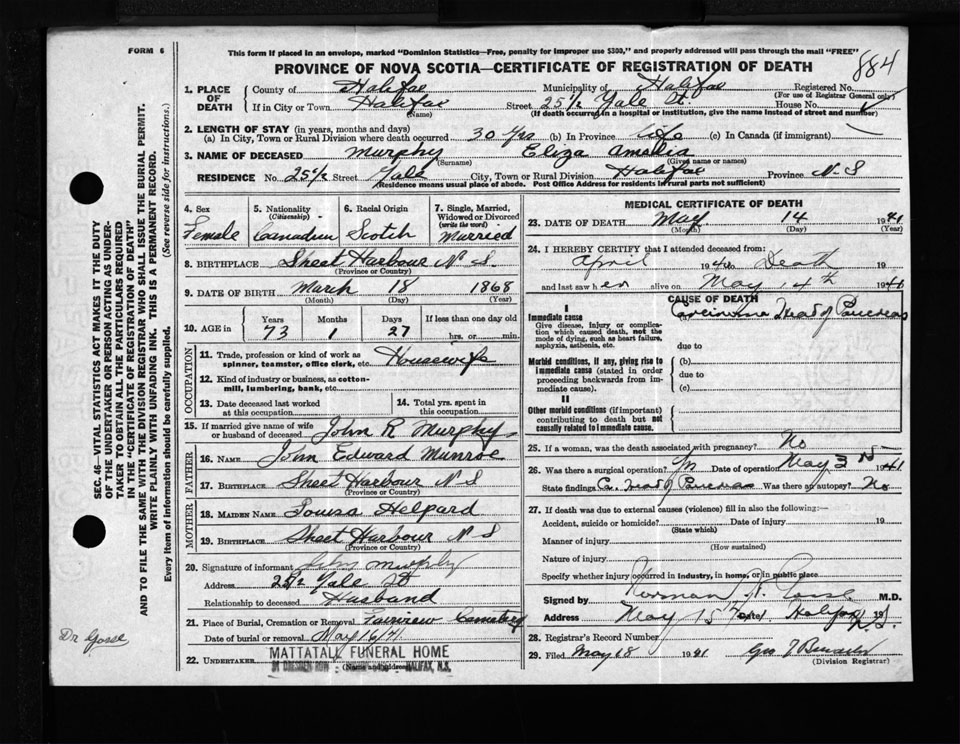 FORM 6
This form if placed in an envelope, marked "Dominion Statistics—Free, penalty for improper use $300," and properly addressed will pass through the mail "FREE"
884
PROVINCE OF NOVA SCOTIA—CERTIFICATE OF REGISTRATION OF DEATH
1. PLACE OF DEATH
County of Halifax Municipality of Halifax Registered No.
(For use of Registrar General only)
If in City or Town Halifax Street 25 1/2 Yale St. House No.
(Name) (If death occurred in a hospital or institution, give the name instead of street and number)
2. LENGTH OF STAY (in years, months and days)
(a) In City, Town or Rural Division where death occurred 30 yrs (b) In Province (c) In Canada (if immigrant)
3. NAME OF DECEASED Murphy Eliza Amelia
(Surname) (Given name or names)
RESIDENCE No. 25 1/2 Street Yale City, Town or Rural Division Halifax Province N.S
(Residence means usual place of abode. Post Office Address for residents in rural parts not sufficient)
4. Sex 5. Nationality (Citizenship) 6. Racial Origin 7. Single, Married, Widowed or Divorced (write the word)
Female Canadian Scotch Married
8. BIRTHPLACE Sheet Harbour N.S.
(Province or Country)
9. DATE OF BIRTH March 18 1868
(Month) (Day) (Year)
10. AGE in Years Months Days If less than one day old
73 1 27 hrs. or min.
OCCUPATION
11. Trade, profession or kind of work as spinner, teamster, office clerk, etc. Housewife
12. Kind of industry or business, as cotton-mill, lumbering, bank, etc.
13. Date deceased last worked at this occupation
14. Total yrs. spent in this occupation
15. If married give name of wife or husband of deceased John R Murphy
FATHER
16. NAME John Edward Munroe
17. BIRTHPLACE Sheet Harbour N S
(Province or Country)
MOTHER
18. MAIDEN NAME Louisa Helpard
19. BIRTHPLACE Sheet Harbour N S
(Province or Country)
20. Signature of informant John Murphy
Address 25 1/2 Yale St
Relationship to deceased Husband
21. Place of Burial, Cremation or Removal Fairview Cemetery
Date of burial or removal May 16/41
22. UNDERTAKER MATTATALL FUNERAL HOME
HALIFAX, N.S.
(Name and address)
MEDICAL CERTIFICATE OF DEATH
23. DATE OF DEATH May 14 1941
(Month) (Day) (Year)
24. I HEREBY CERTIFY that I attended deceased from:
April 1940 Death 19
and last saw her alive on May 14th 1941
CAUSE OF DEATH
I
Immediate cause
Give disease, injury or complication which caused death, not the mode of dying, such as heart failure, asphyxia, asthenia, etc.
Carcinoma Head of Pancreas
due to
Morbid conditions, if any, giving rise to immediate cause (stated in order proceeding backwards from immediate cause).
(b)
due to
(c)
II
Other morbid conditions (if important) contributing to death but not causally related to immediate cause.
25. If a woman, was the death associated with pregnancy? No
26. Was there a surgical operation? Date of operation May 3rd 1941
State findings Ca. Head of Pancreas Was there an autopsy? No
27. If death was due to external causes (violence) fill in also the following:—
Accident, suicide or homicide? Date of injury 19
(State which)
Manner of injury
(How sustained)
Nature of injury
Specify whether injury occurred in industry, in home, or in public place
Signed by Norman H. Gosse M.D.
Address May 15 Date Halifax N.S.
28. Registrar's Record Number
29. Filed May 18 1941 Geo
(Division Registrar)
SEC. 46—VITAL STATISTICS ACT MAKES IT THE DUTY
OF THE UNDERTAKER OR PERSON ACTING AS UNDERTAKER TO OBTAIN ALL THE PARTICULARS REQUIRED
IN THE "CERTIFICATE OF REGISTRATION OF DEATH"
AND TO FILE THE SAME WITH THE DIVISION REGISTRAR WHO SHALL ISSUE THE BURIAL PERMIT.
WRITE PLAINLY WITH UNFADING INK. THIS IS A PERMANENT RECORD.
Every item of information should be carefully supplied. (See reverse side for instructions.)
Dr Gosse